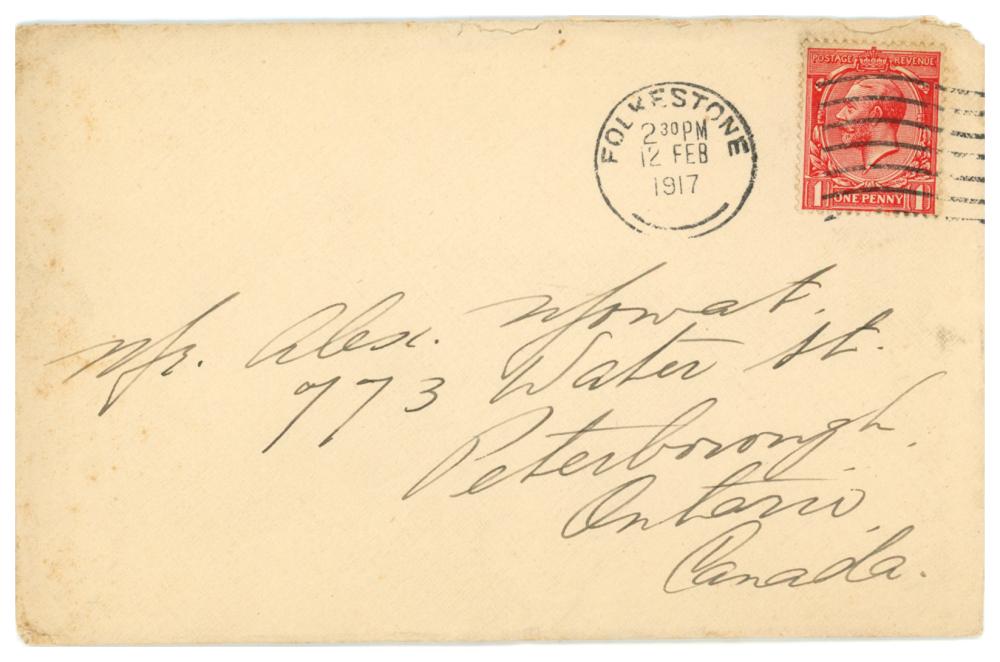 POSTAGE REVENUE
FOLKESTONE
2 30 PM
12 FEB
1917
1 ONE PENNY 1
Mr. Alex. Mowat,
773 Water St.
Peterborough,
Ontario,
Canada.